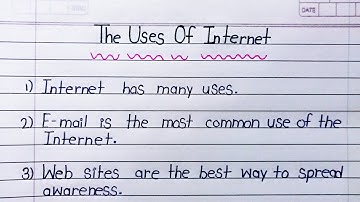 DATE
The Uses Of Internet
1) Internet has many uses.
2) E-mail is the most common use of the
Internet.
3) Web sites are the best way to spread
awareness.